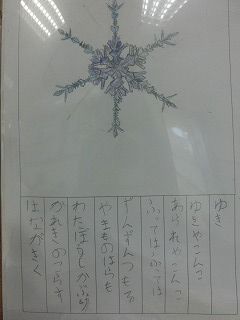 ゆき
ゆきやこんこ
あられやこんこ
ふってはふっては
ずんずんつもる
やまものはらも
わたぼうしかぶり
かれきのこらず
はながさく